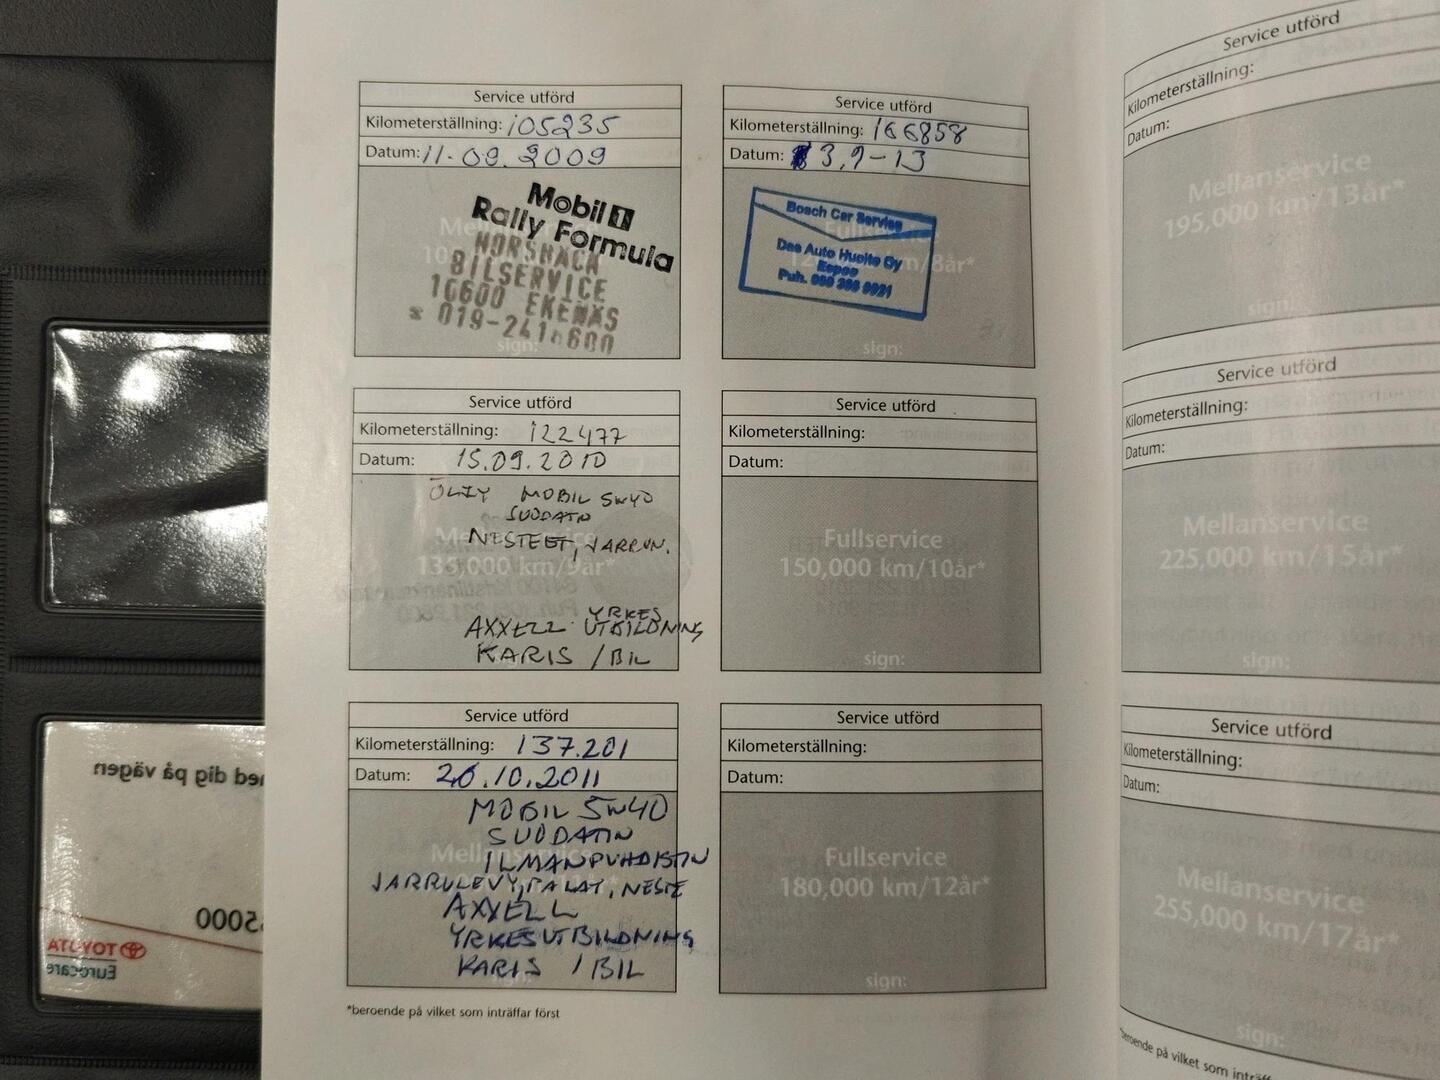 Service utförd
Kilometerställning: 105235
Datum: 11.09.2009
Mobil 1
Rally Formula
HORSBÄCK
BILSERVICE
10600 EKENÄS
019-241 600
sign:
Service utförd
Kilometerställning: 122477
Datum: 15.09.2010
ÖLJY MOBIL 5W40
SUODATIN
NESTEET, JARRUN.
135,000 km/9år*
AXXELL YRKES
UTBILDNING
KARIS / BIL
Service utförd
Kilometerställning: 137.201
Datum: 26.10.2011
MOBIL 5W40
SUODATIN
ILMANPUHDISTIN
JARRULEVY, PALAT, NESTE
AXXELL
YRKESUTBILDNING
KARIS / BIL
sign:
*beroende på vilket som inträffar först
Service utförd
Kilometerställning: 166858
Datum: 3.9-13
Bosch Car Service
Das Auto Huolto Oy
Espoo
Fullservice
km/8år*
sign:
Service utförd
Kilometerställning:
Datum:
Fullservice
150,000 km/10år*
sign:
Service utförd
Kilometerställning:
Datum:
Fullservice
180,000 km/12år*
sign:
Service utförd
Kilometerställning:
Datum:
Mellanservice
195,000 km/13år*
sign:
Service utförd
Kilometerställning:
Datum:
Mellanservice
225,000 km/15år*
sign:
Service utförd
Kilometerställning:
Datum:
Mellanservice
255,000 km/17år*
sign:
*beroende på vilket som inträffar
med dig på vägen
5000
TOYOTA
Eurocare